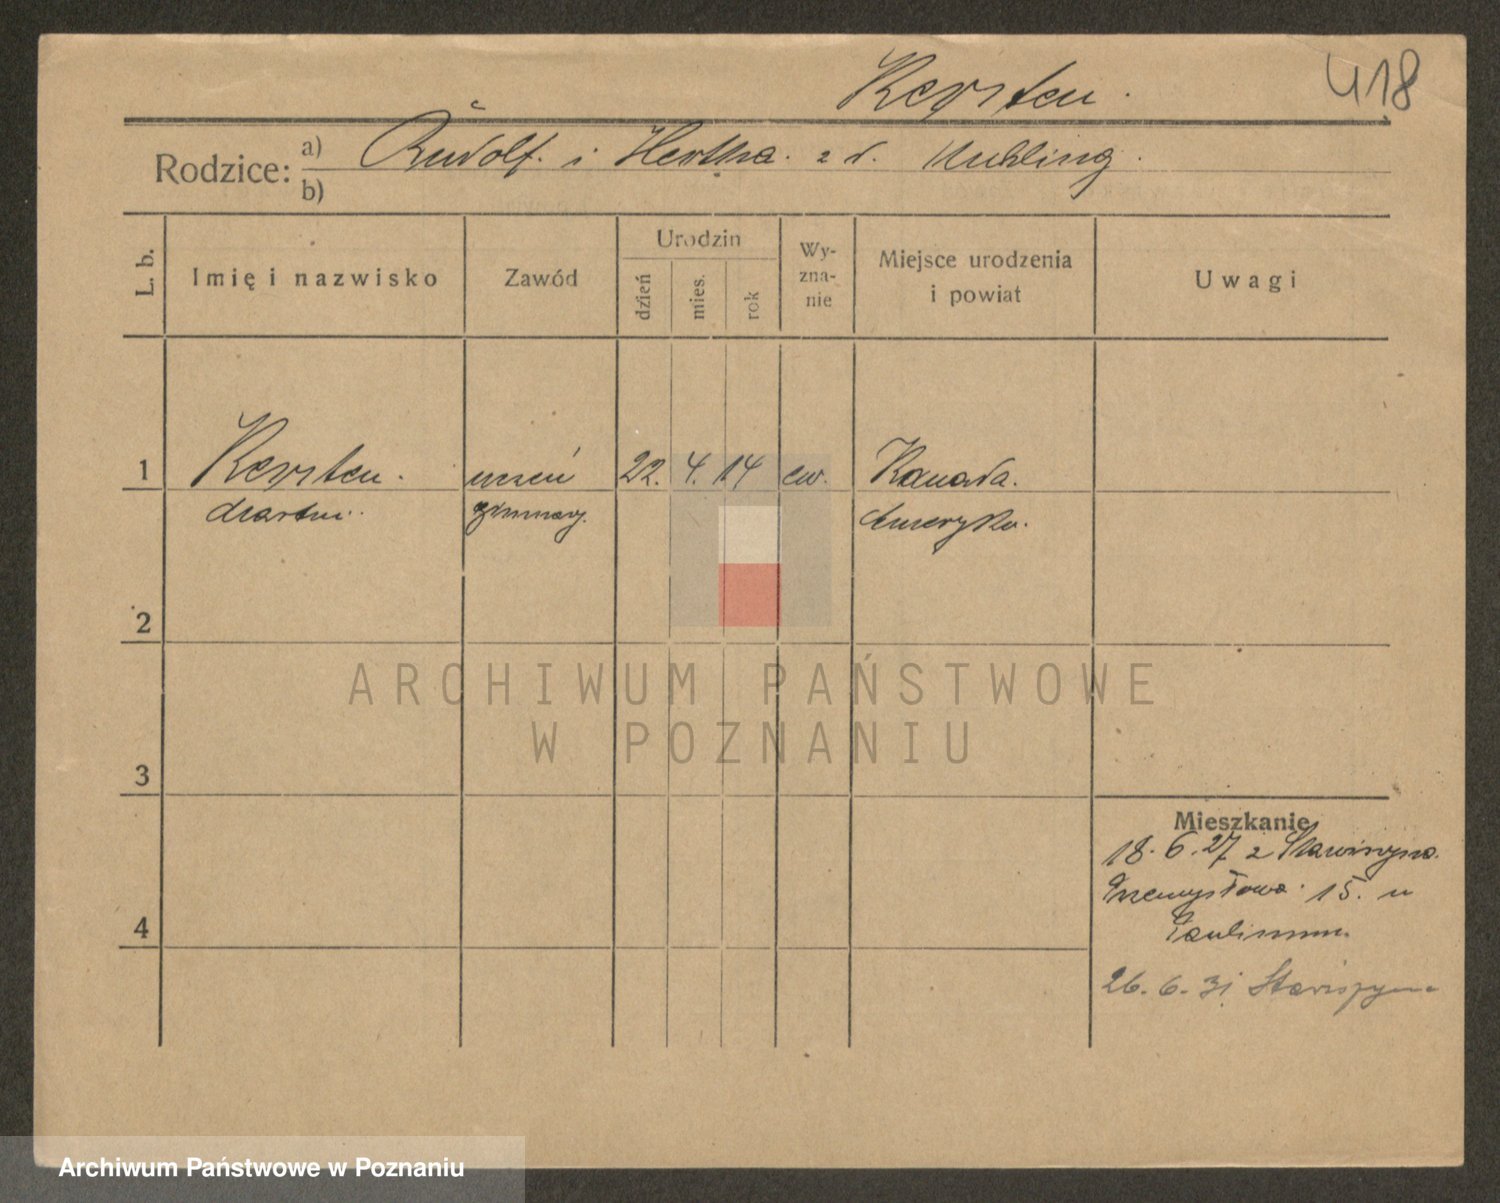 Kersten.
418
Rodzice:
a) Rudolf. i Hertha. z d. Muhling.
b)
L. b.
Imię i nazwisko
Zawód
Urodzin
dzień
mies.
rok
Wy-
zna-
nie
Miejsce urodzenia
i powiat
Uwagi
1
Kersten. uczeń 22. 4. 14 ew. Kanada.
Martin. gimnazj. Ameryka.
2
ARCHIWUM PAŃSTWOWE
W POZNANIU
3
Mieszkanie
18. 6. 27 z Stawiszyna.
Przemysłowa. 15. u
4
Paulinum.
26. 6. 31
Archiwum Państwowe w Poznaniu